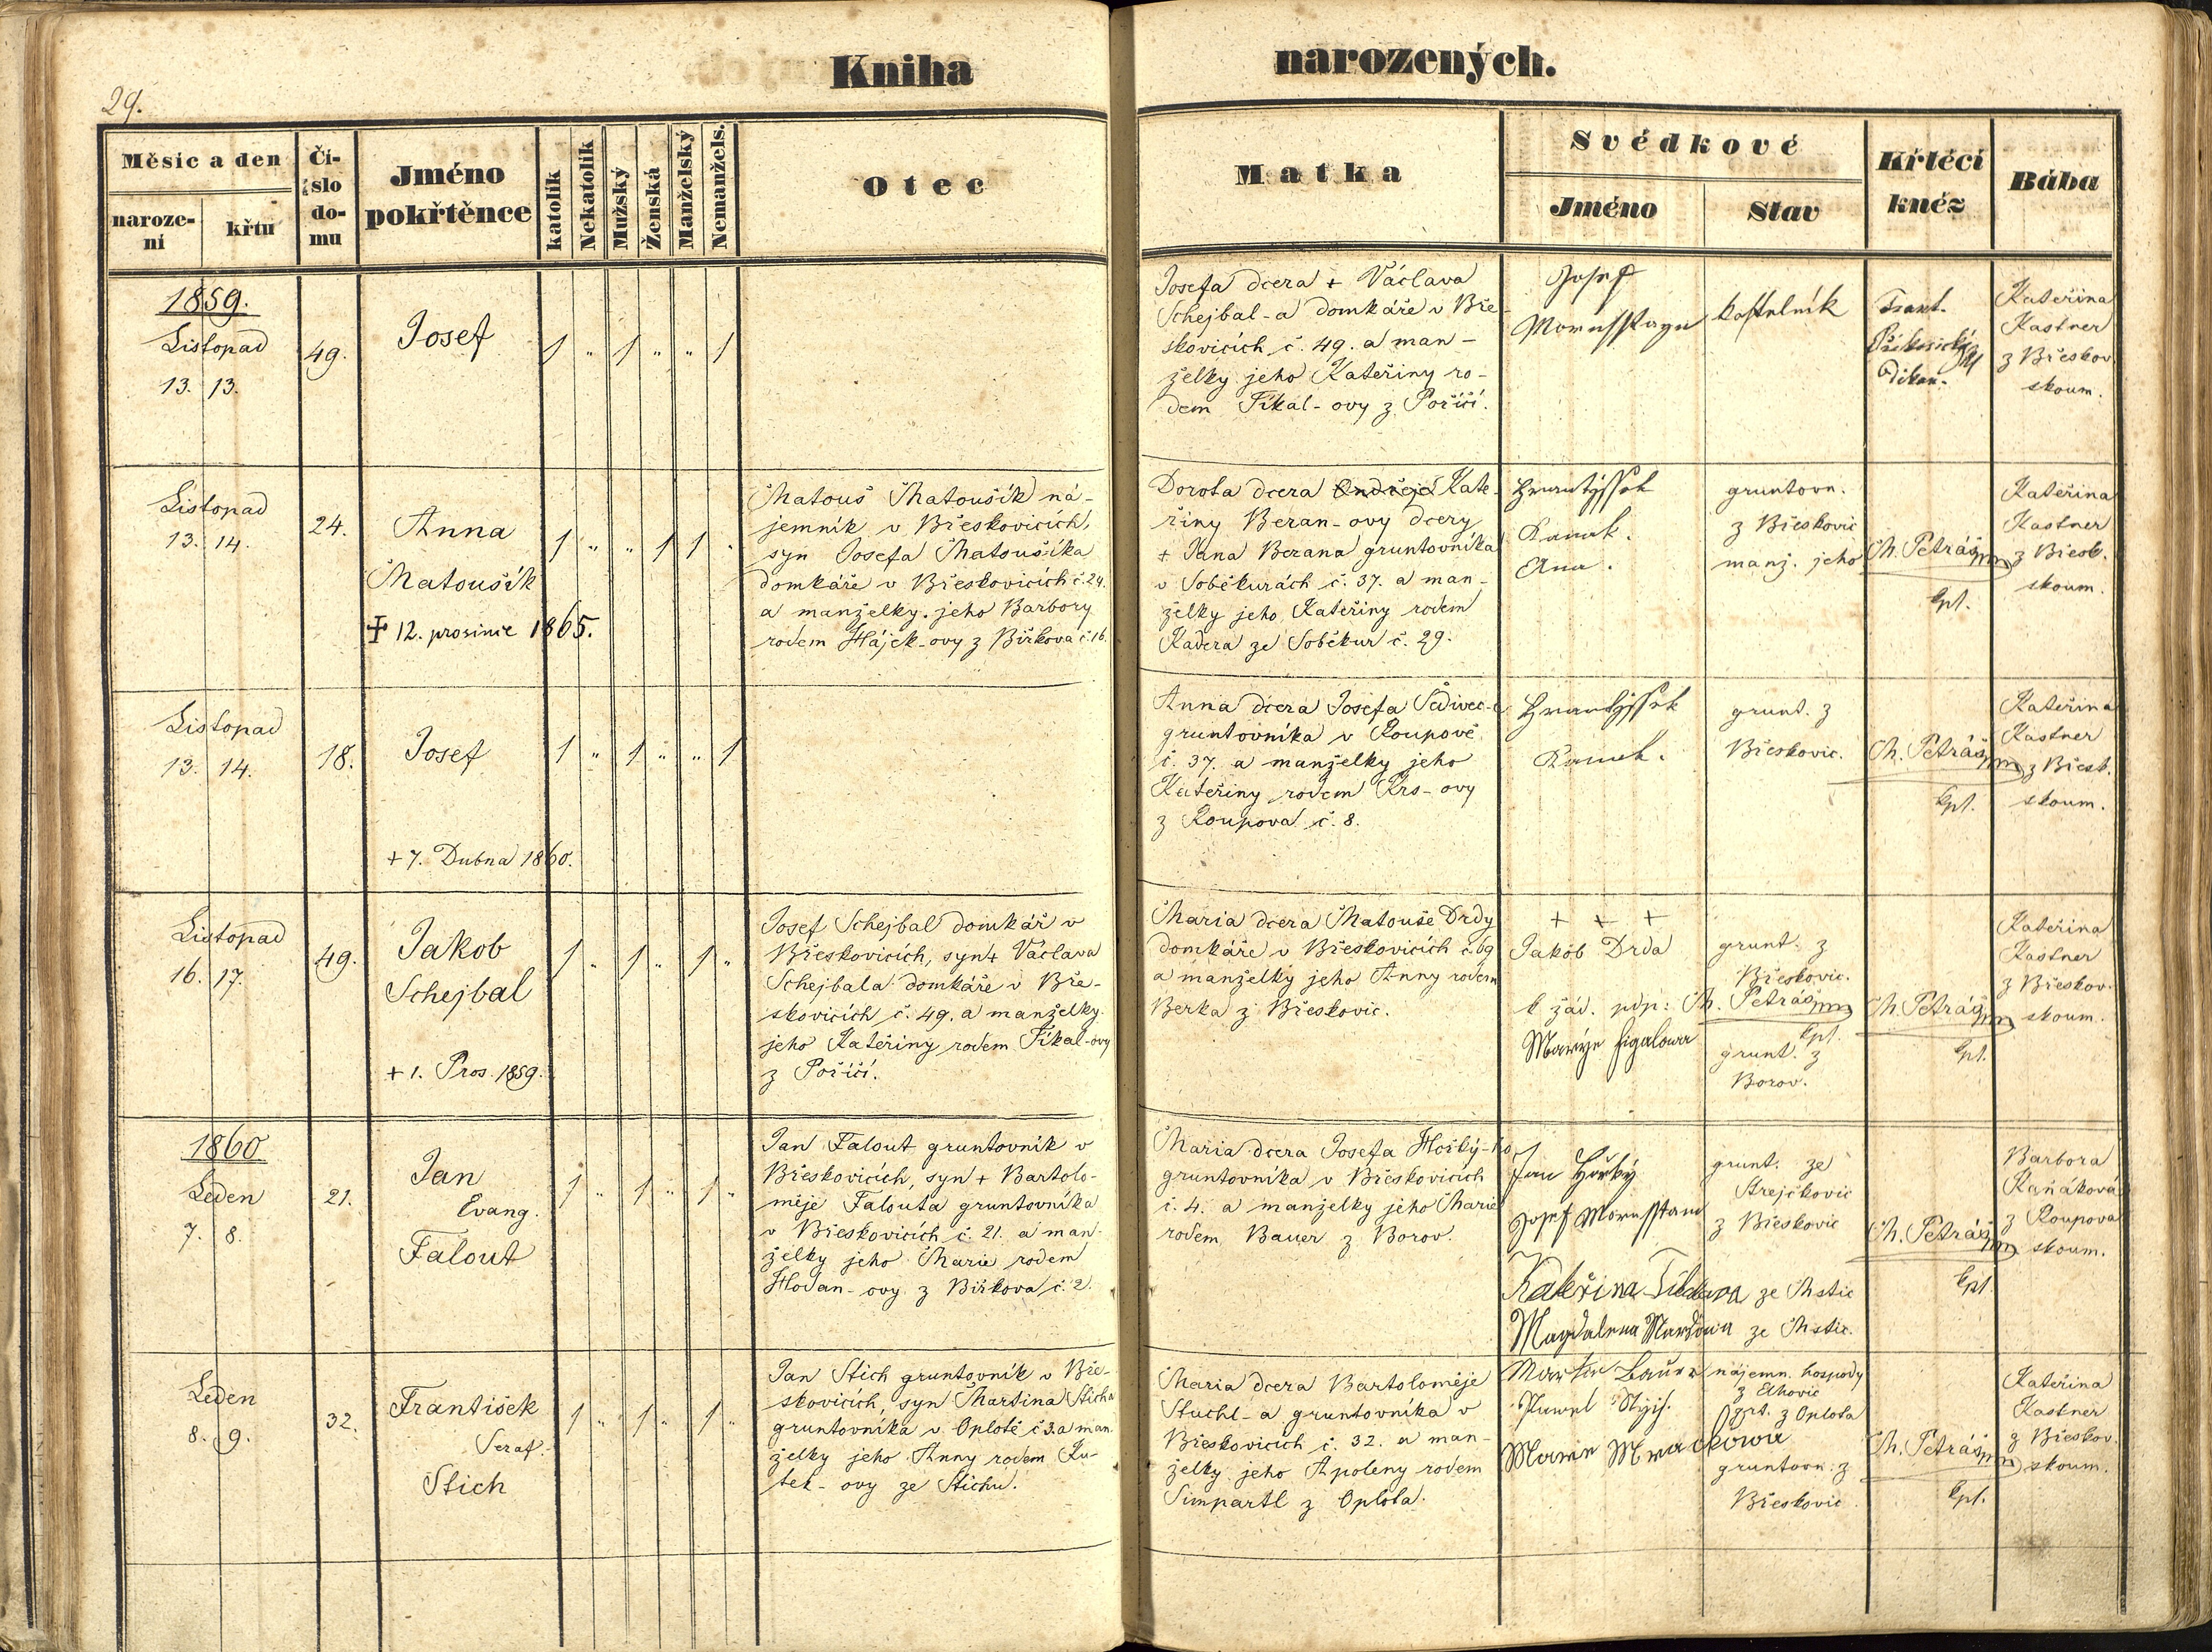 Kniha narozených.
29.
Měsíc a den
naroze-
ní
křtu
Čí-
slo
do-
mu
Jméno
pokřtěnce
katolík
Nekatolík
Mužský
Ženská
Manželský
Nemanžels.
Otec
Matka
Svědkové
Jméno
Stav
Křtěcí
kněz
Bába
1859.
Listopad
13. 13.
49.
Josef
1 " 1 " " 1
Josefa dcera + Václava
Schejbal-a domkáře v Bře-
skovicích č. 49. a man-
želky jeho Kateřiny ro-
dem Fikal-ovy z Poříčí.
Josef
kostelník
Frant.
Děkan.
Kateřina
Kastner
z Břeskov.
skoum.
Listopad
13. 14.
24.
Anna
Matoušík
+ 12. prosince 1865.
1 " " 1 1 "
Matouš Matoušík ná-
jemník v Břeskovicích,
syn Josefa Matoušíka
domkáře v Břeskovicích č. 24.
a manželky jeho Barbory
rodem Hájek-ovy z Birkova č. 16.
Dorota dcera Ondřeje Kate-
řiny Beran-ovy dcery
+ Jana Berana gruntovníka
v Soběkurách č. 37. a man-
želky jeho Kateřiny rodem
Kadera ze Soběkur č. 29.
Frantissek
Ana.
gruntovn.
z Břeskovic
manž. jeho
M. Petráš
kpl.
Kateřina
Kastner
z Břesk.
skoum.
Listopad
13. 14.
18.
Josef
+ 7. Dubna 1860.
1 " 1 " " 1
Anna dcera Josefa Šedivec-
gruntovníka v Roupově
č. 37. a manželky jeho
Kateřiny rodem Krs-ovy
z Roupova č. 8.
Frantissek
grunt. z
Břeskovic.
M. Petráš
kpl.
Kateřina
Kastner
z Břesk.
skoum.
Listopad
16. 17.
49.
Jakob
Schejbal
+ 1. Pros. 1859.
1 " 1 " 1 "
Josef Schejbal domkář v
Břeskovicích, syn + Václava
Schejbala domkáře v Bře-
skovicích č. 49. a manželky
jeho Kateřiny rodem Fikal-ovy
z Poříčí.
Maria dcera Matouše Drdy
domkáře v Břeskovicích č. 69
a manželky jeho Anny rodem
Berka z Břeskovic.
+ + +
Jakob Drda
k žád. pdp: M. Petráš
kpl.
Maryje Figalowa
grunt. z
Břeskovic.
grunt. z
Borov.
M. Petráš
kpl.
Kateřina
Kastner
z Břeskov.
skoum.
1860
Leden
7. 8.
21.
Jan
Evang.
Falout
1 " 1 " 1 "
Jan Falout gruntovník v
Břeskovicích, syn + Bartolo-
měje Falouta gruntovníka
v Břeskovicích č. 21. a man-
želky jeho Marie rodem
Hodan-ovy z Birkova č. 2.
Maria dcera Josefa Horký-ho
gruntovníka v Břeskovicích
č. 4. a manželky jeho Marie
rodem Bauer z Borov.
Jan Horký
Josef
Kateřina
Magdalena
grunt. ze
Strejčkovic
z Břeskovic
ze Mstic
ze Mstic.
M. Petráš
kpl.
Barbora
Kaňáková
z Roupova
skoum.
Leden
8. 9.
32.
František
Seraf.
Stich
1 " 1 " 1 "
Jan Stich gruntovník v Bře-
skovicích, syn Martina Sticha
gruntovníka v Oplotě č 3. a man-
želky jeho Anny rodem Ku-
tek-ovy ze Stichu.
Maria dcera Bartoloměje
Stuchl-a gruntovníka v
Břeskovicích č. 32. a man-
želky jeho Apoleny rodem
Simpartl z Oplota.
Martin Bauer
Pawel
nájemn. hospody
z Elhovic
grt. z Oplota
gruntovn. z
Břeskovic
M. Petráš
kpl.
Kateřina
Kastner
z Břeskov.
skoum.